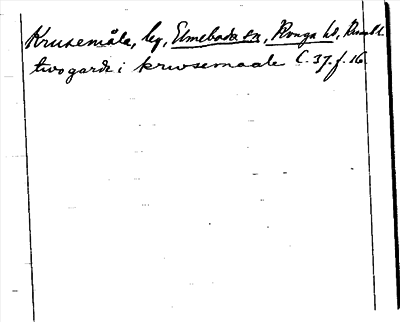 Krusemåla, by, Elmeboda sn, Konga hd, Kronobl.
two garde i krwsemaale C. 37. f. 16